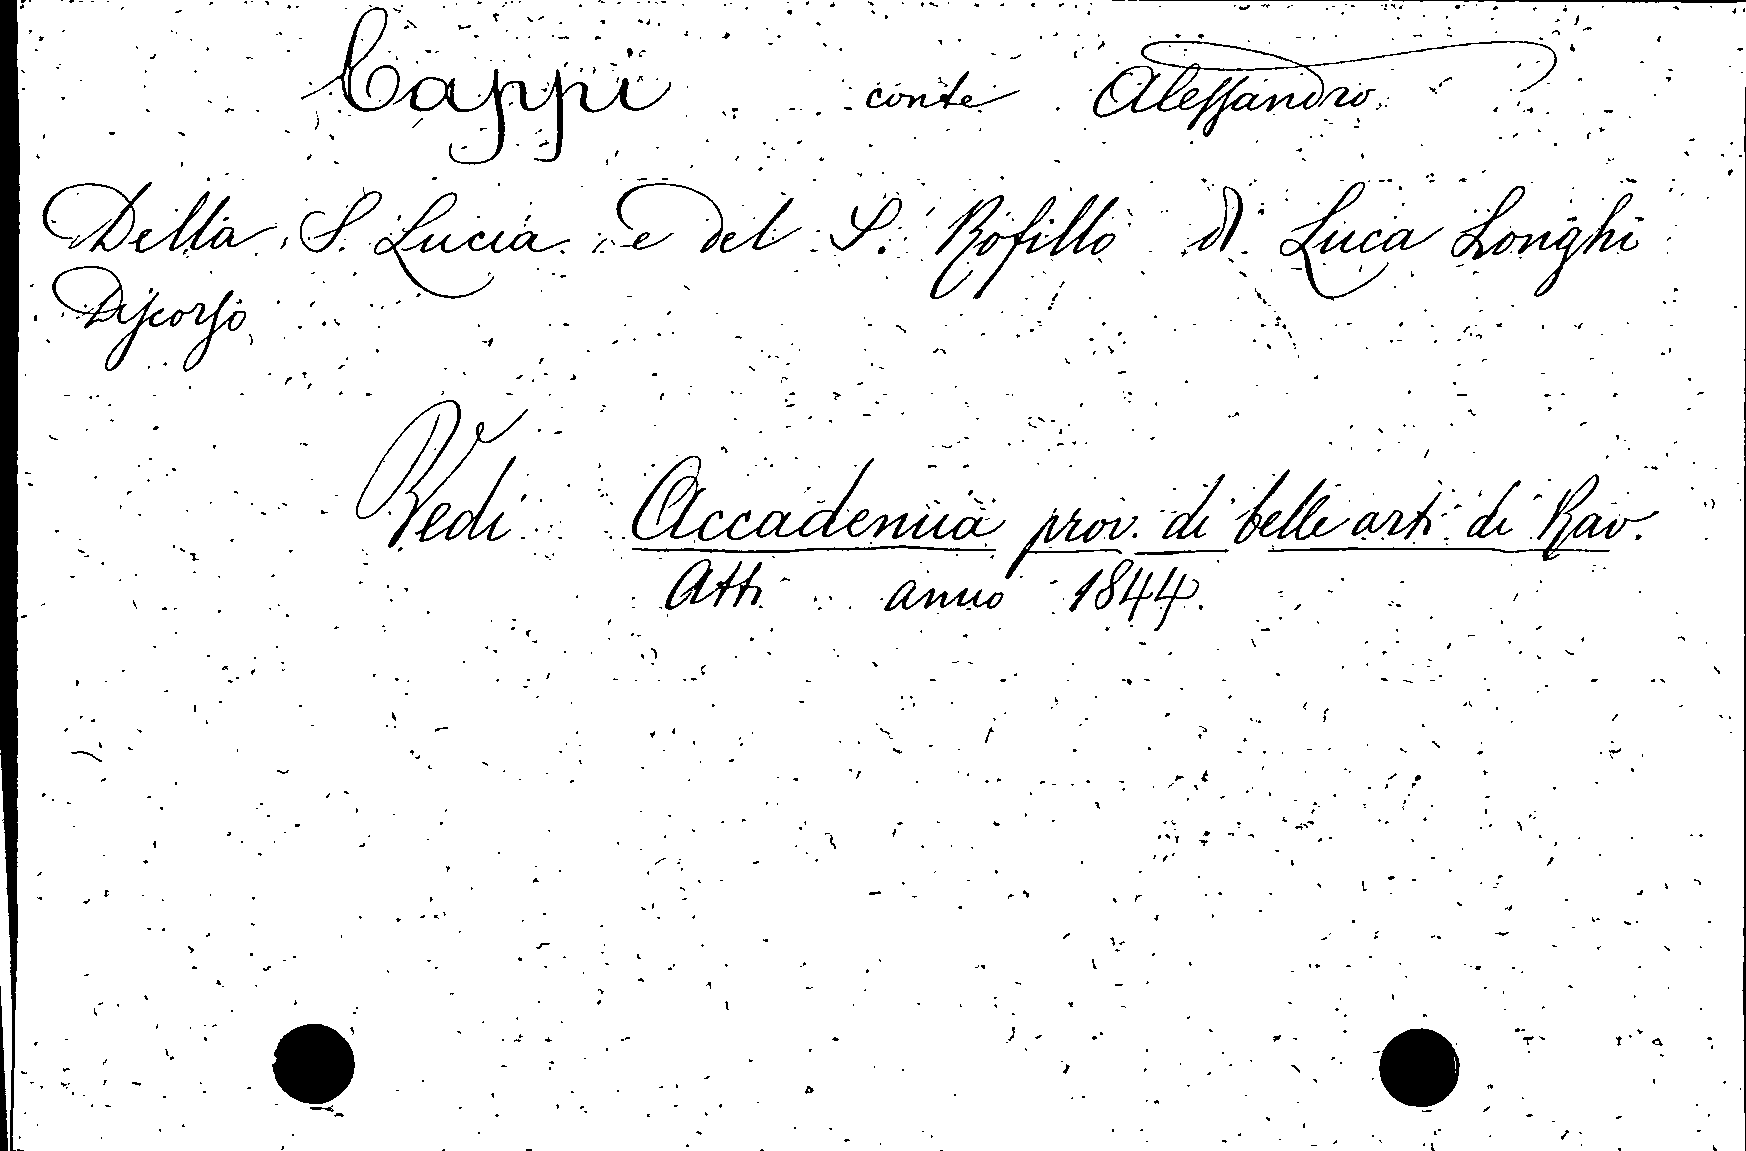 Cappi conte Alessandro
Della S. Lucia e del S. Rofillo di Luca Longhi
Discorso
Vedi Accademia prov. di belle arti di Rav.
Atti anno 1844.